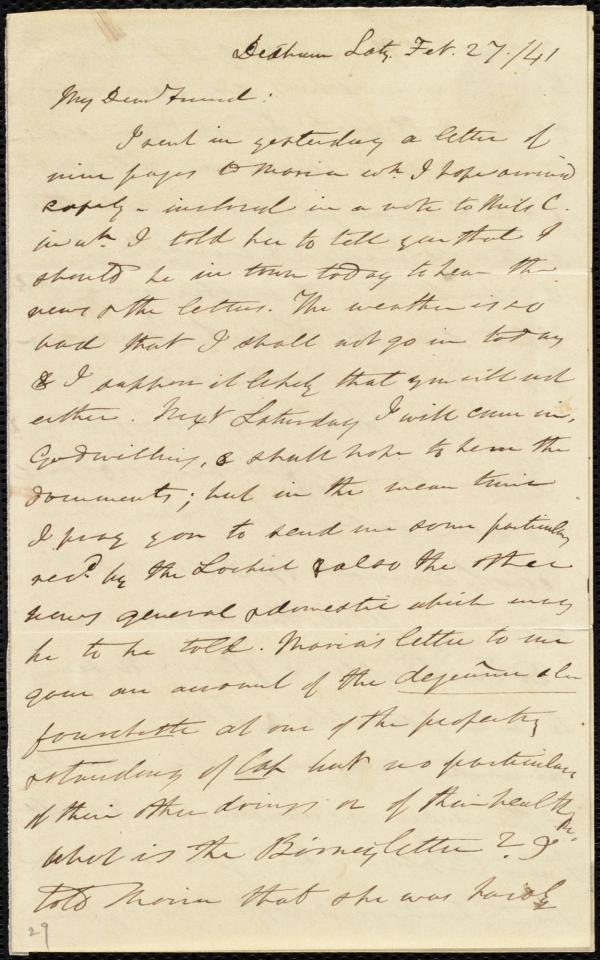 Dedham Saty. Feb. 27./41
My Dear friend:
I sent in yesterday a letter of
nine pages to Maria wh. I hope arrived
safely - inclosed in a note to Miss C.
in wh. I told her to tell you that I
should be in town today to hear the
news & the letters. The weather is so
bad that I shall not go in today
& I suppose it likely that you will not
either. Next Saturday I will come in,
God willing, & shall hope to hear the
documents; but in the mean time
I pray you to send me some particulars
recd. by the & also the other
news general & domestic which may
be to be told. Maria's letter to me
gave an account of the dejeûner a la
fourchette at one of the property
& standing of Cap but no particulars
of their other doings or of their health &c.
What is the Birney letter? I
told Maria that she was hardly
29